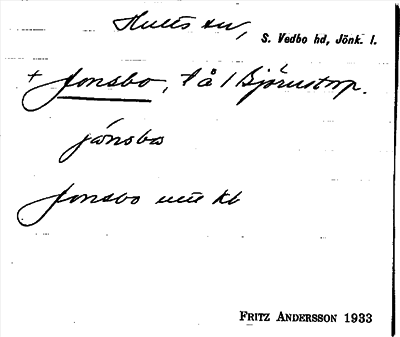 Hults sn, S. Vedbo hd, Jönk. l.
+ Jonsbo, t å / Björnstorp.
jónsbo
Jonsbo utt Kb
FRITZ ANDERSSON 1933